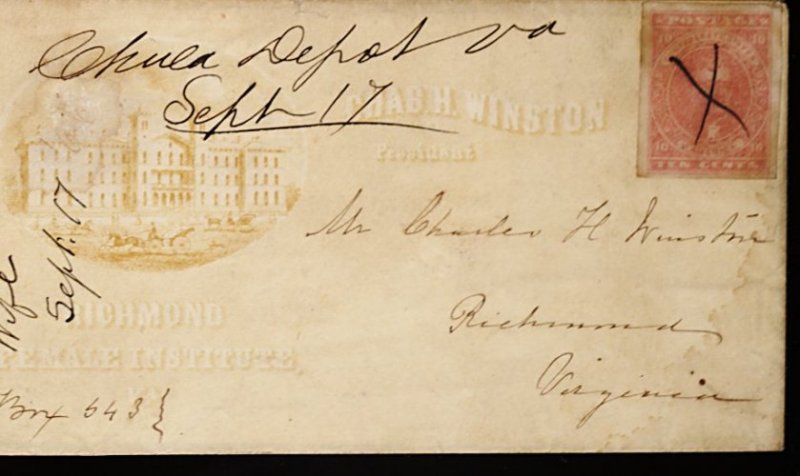 Chula Depot Va
Sept 17
POSTAGE
10 10
10 10
TEN CENTS
CHAS H. WINSTON
President
Mr Charles H Winston
Richmond
Virginia
Wife
Sept. 17
RICHMOND
FEMALE INSTITUTE
Box 643